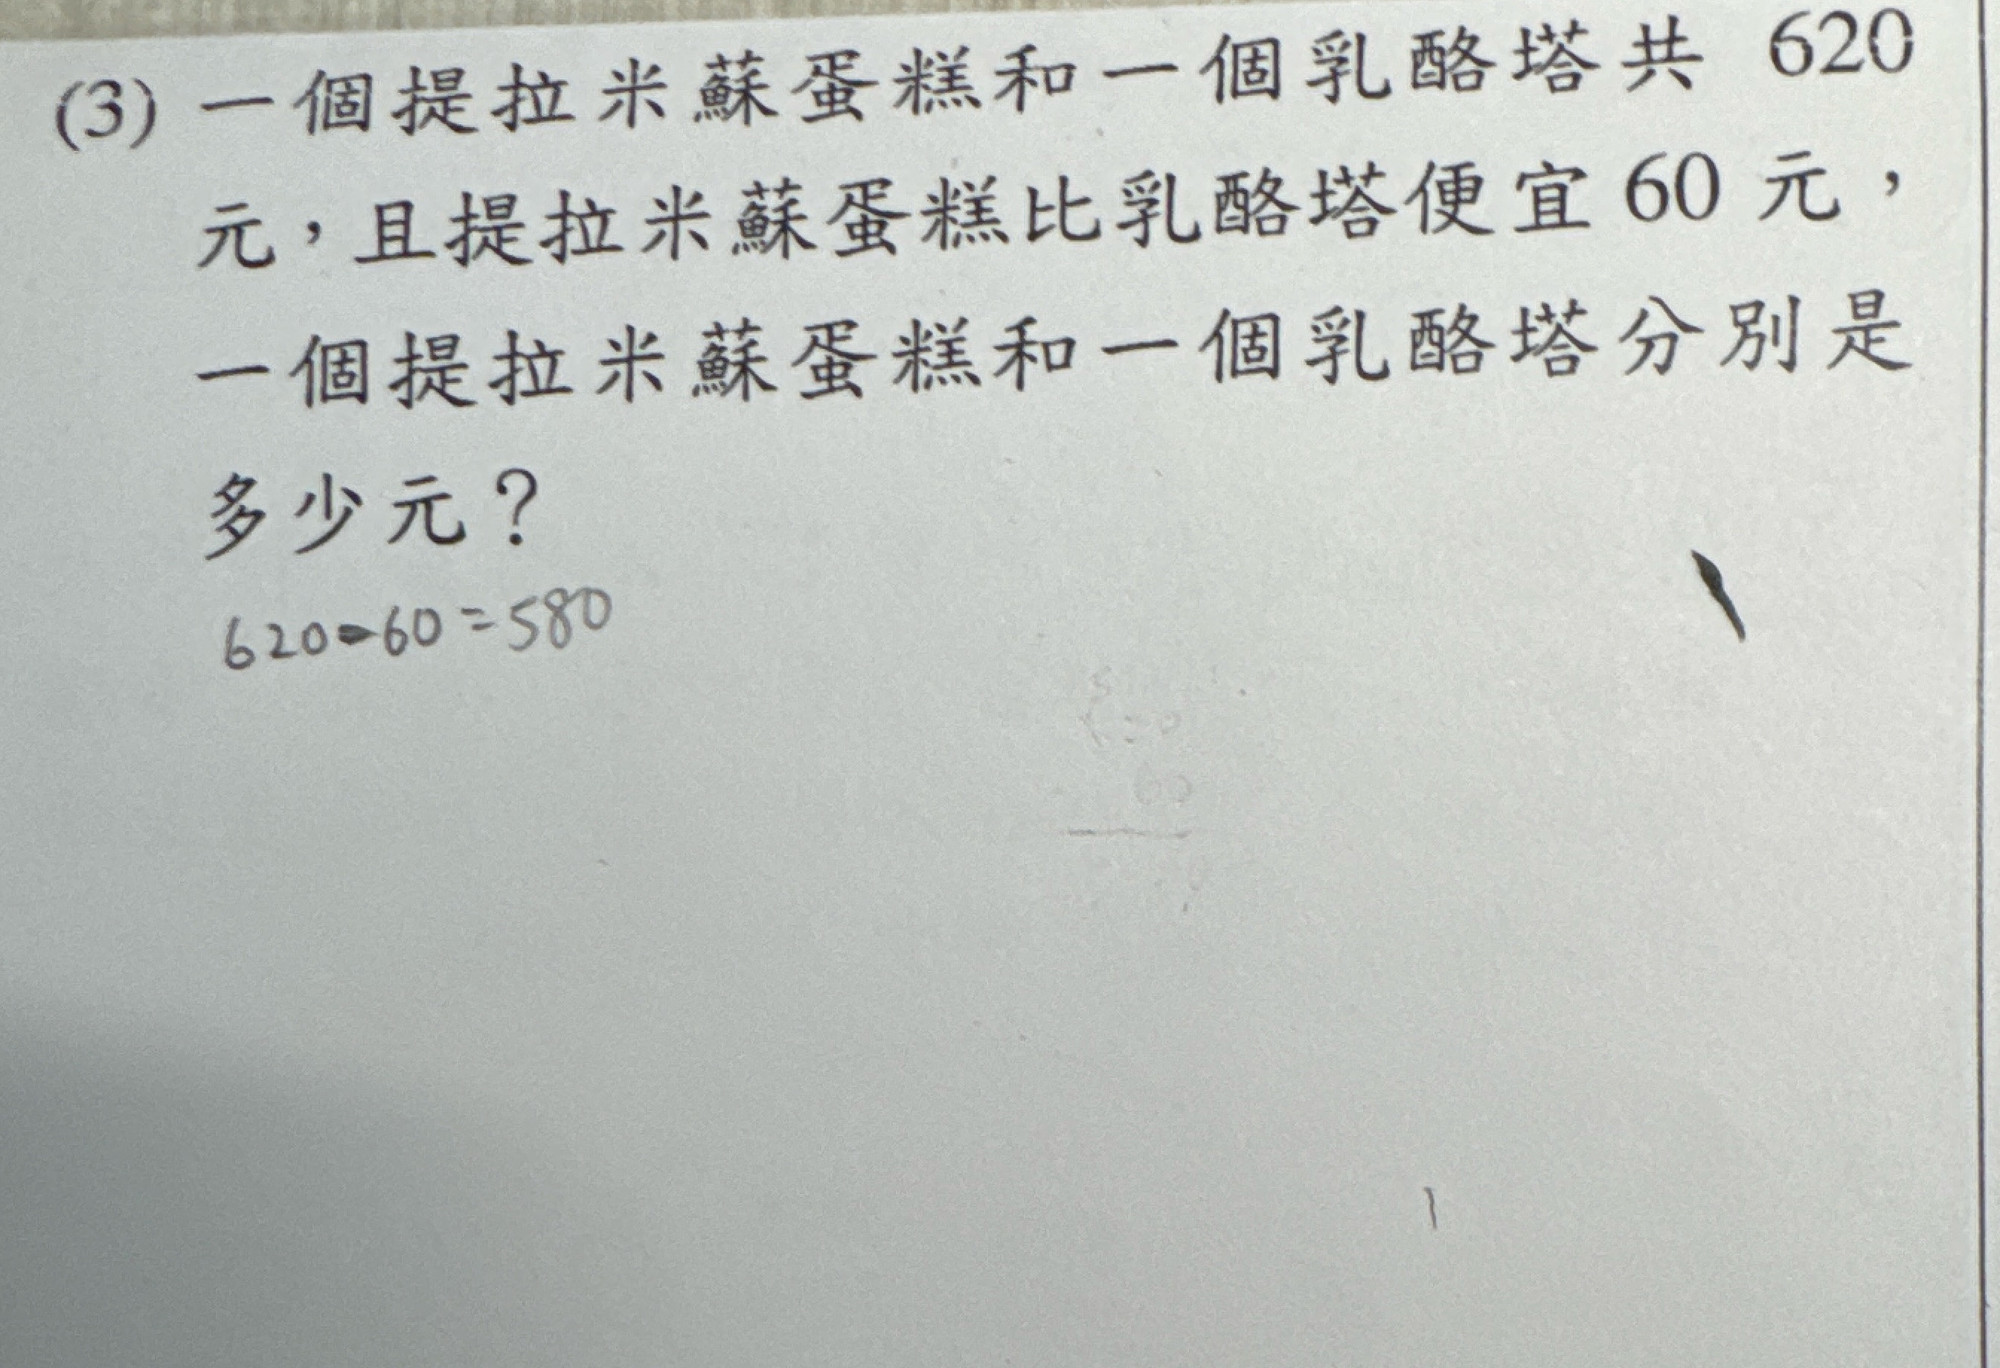 (3) 一個提拉米蘇蛋糕和一個乳酪塔共 620
元，且提拉米蘇蛋糕比乳酪塔便宜 60 元，
一個提拉米蘇蛋糕和一個乳酪塔分別是
多少元？
620-60=580
60